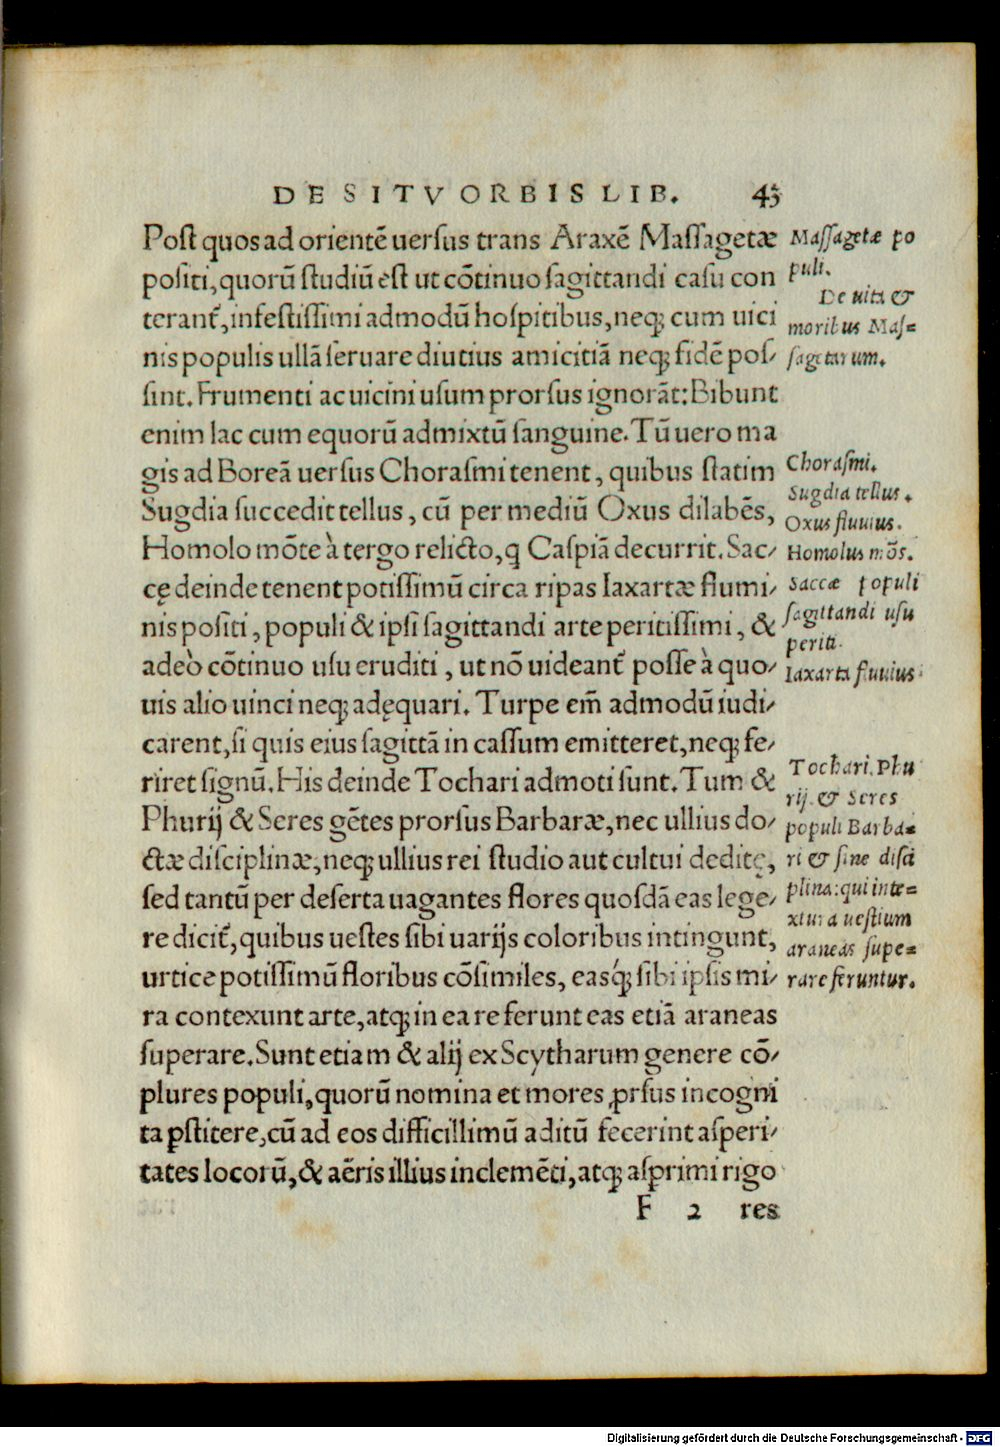 DE SITV ORBIS LIB. 43
Post quos ad orientē uersus trans Araxē Massagetæ
positi, quorū studiū est ut cōtinuo sagittandi casu con
terant᷑, infestissimi admodū hospitibus, neq; cum uici
nis populis ullā seruare diutius amicitiā neq; fidē pos-
sint. Frumenti ac uicini usum prorsus ignorāt: Bibunt
enim lac cum equorū admixtū sanguine. Tū uero ma
gis ad Boreā uersus Chorasmi tenent, quibus statim
Sugdia succedit tellus, cū per mediū Oxus dilabēs,
Homolo mōte à tergo relicto, q Caspiā decurrit. Sac-
cę deinde tenent potissimū circa ripas Iaxartæ flumi-
nis positi, populi & ipsi sagittandi arte peritissimi, &
adeò cōtinuo usu eruditi, ut nō uideant᷑ posse à quo-
uis alio uinci neq; adęquari. Turpe em̄ admodū iudi-
carent, si quis eius sagittā in cassum emitteret, neq; fe-
riret signū. His deinde Tochari admoti sunt. Tum &
Phurij & Seres gētes prorsus Barbaræ, nec ullius do-
ctæ disciplinæ, neq; ullius rei studio aut cultui deditę,
sed tantū per deserta uagantes flores quosdā eas lege-
re dicit᷑, quibus uestes sibi uarijs coloribus intingunt,
urtice potissimū floribus cōsimiles, easq́; sibi ipsis mi-
ra contexunt arte, atq; in ea re ferunt eas etiā araneas
superare. Sunt etiam & alij ex Scytharum genere cō-
plures populi, quorū nomina et mores ꝓrsus incogni
ta pstitere, cū ad eos difficillimū aditū fecerint asperi-
tates locorū, & aëris illius inclemēti, atq; asprimi rigo
F 2 res
Massagetæ po
puli.
De uita &
moribus Mas=
sagetarum.
Chorasmi.
Sugdia tellus.
Oxus fluuius.
Homolus mōs.
Saccæ populi
sagittandi usu
periti.
Iaxarta fluuius.
Tochari. Phu
rij. & Seres
populi Barba=
ri & sine disci
plina: qui inte=
xtura uestium
araneas supe=
rare feruntur.
Digitalisierung gefördert durch die Deutsche Forschungsgemeinschaft - DFG